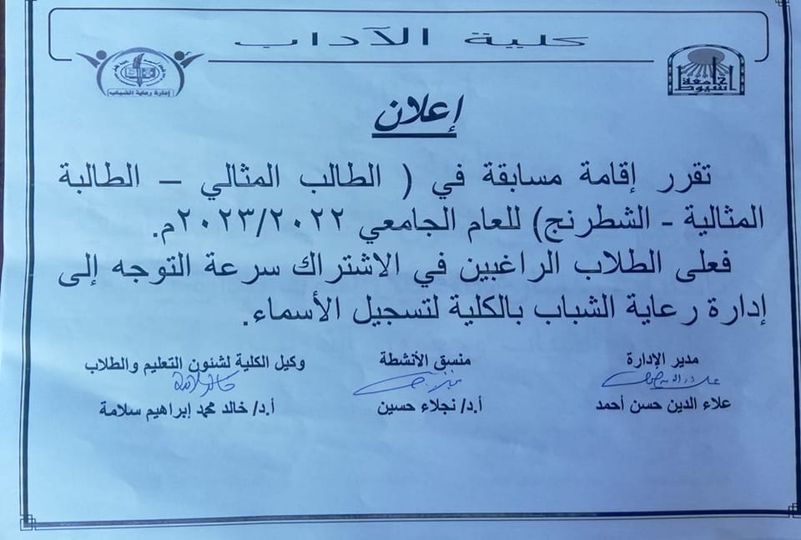 كلية الآداب
إدارة رعاية الشباب
جامعة أسيوط
إعلان
تقرر إقامة مسابقة في ( الطالب المثالي – الطالبة
المثالية - الشطرنج) للعام الجامعي ٢٠٢٣/٢٠٢٢م.
فعلى الطلاب الراغبين في الاشتراك سرعة التوجه إلى
إدارة رعاية الشباب بالكلية لتسجيل الأسماء.
مدير الإدارة
منسق الأنشطة
وكيل الكلية لشئون التعليم والطلاب
علاء الدين حسن أحمد
أ.د/ نجلاء حسين
أ.د/ خالد محمد إبراهيم سلامة